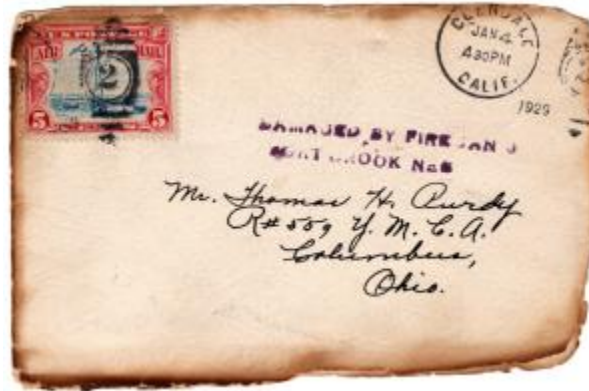 U.S. POSTAGE
AIR MAIL
2
5 5
GLENDALE
JAN 4
4 30 PM
CALIF.
1929
DAMAGED BY FIRE JAN
FORT CROOK Neb
Mr. Thomas H. Purdy
R# 559 Y. M. C. A.
Columbus,
Ohio.